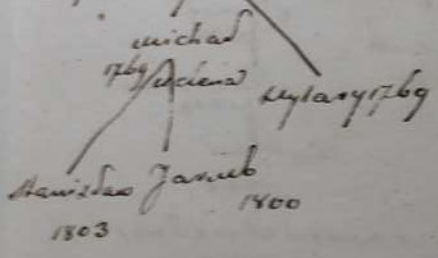 Michał
1769
Hylary 1769
Stanisław Jakub
1800
1803